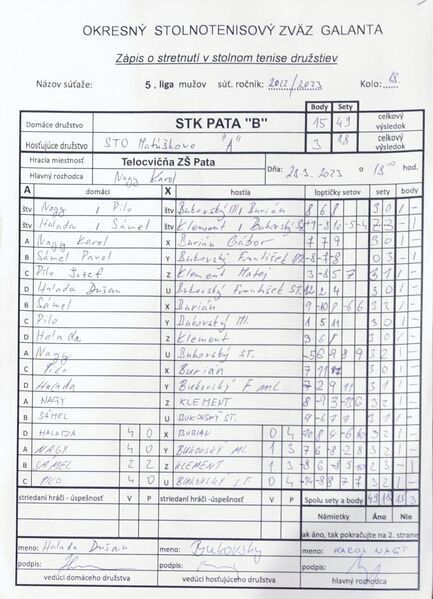 OKRESNÝ STOLNOTENISOVÝ ZVÄZ GALANTA
Zápis o stretnutí v stolnom tenise družstiev
Názov súťaže: 5. liga mužov súť. ročník: 2022/2023 Kolo: 18
Body Sety
Domáce družstvo STK PATA "B" 15 49 celkový výsledok
Hosťujúce družstvo STO Matúškovo "A" 3 18 celkový výsledok
Hracia miestnosť Telocvičňa ZŠ Pata
Dňa: 28.3.2023 o 18 00 hod
Hlavný rozhodca Nagy Karol
A domáci X hostia loptičky setov sety body
štv Nagy / Pilo štv Bukovský Ml / Burián 8 6 8 3 0 1 -
štv Halada Sámel štv Klement / Bukovský
A Nagy Karol X Burián Gábor 7 7 9 3 0 1 -
B Sámel Pavel Y Bukovský František 0 3 - 1
C Pilo Jozef Z Klement Matej 3 -8 5 7 3 1 1 -
D Halada Dušan U Bukovský František ST. 12 2 4 3 0 1 -
B Sámel X Burián 9 -10 9 -6 6 3 2 1 -
C Pilo Y Bukovský Ml. 1 5 11 3 0 1 -
D Halada Z Klement 3 6 8 3 0 1 -
A Nagy U Bukovský ST. -5 6 9 8 9 3 2 1 -
C Pilo X Burián 7 11 3 0 1 -
D Halada Y Bukovský F ml. 7 -2 9 11 3 1 1 -
A NAGY Z KLEMENT 3 2 1 -
B SÁMEL U BUKOVSKÝ ST. 9 -6 7 7 3 1 1 -
D HALADA 4 0 X BURIAN 0 4 3 2 1 -
A NAGY 4 0 Y BUKOVSKÝ ML 1 3 7 6 -8 2 8 3 2 1 -
B SÁMEL 2 2 Z KLEMENT 1 3 2 3 - 1
C PILO 4 0 U BUKOVSKÝ ST. 0 4 3 2 1 -
striedaní hráči - úspešnosť V P striedaní hráči - úspešnosť V P Spolu sety a body 49 18 15 3
Námietky Áno Nie
ak áno, tak pokračujte na 2. strane
meno: Halada Dušan meno: Bukovský meno: KAROL NAGY
podpis: podpis: podpis:
vedúci domáceho družstva vedúci hosťujúceho družstva hlavný rozhodca